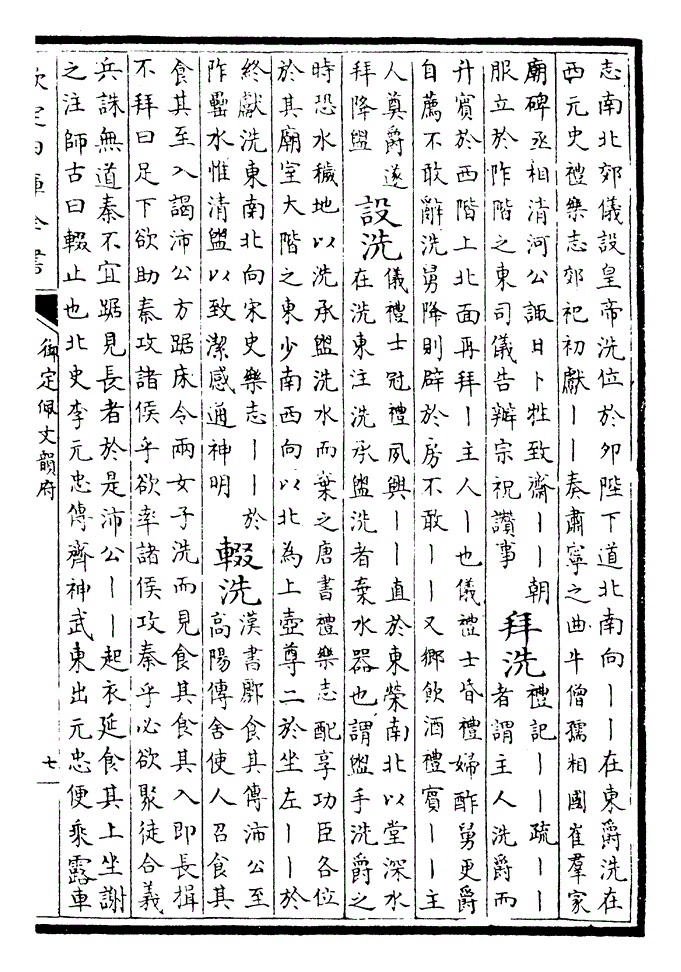 志南北郊儀設皇帝洗位於夘陛下道北南向丨丨在東爵洗在
西元史禮樂志郊祀初獻丨丨奏肅寧之曲牛僧孺相國崔羣家
廟碑丞相清河公諏日卜牲致齋丨丨朝
服立於阼階之東司儀告辦宗祝讃事
拜洗
禮記丨丨疏丨丨
者謂主人洗爵而
升賓於西階上北面再拜丨主人丨也儀禮士昏禮婦酢舅更爵
自薦不敢辭洗舅降則辟於房不敢丨丨又鄉飲酒禮賓丨丨主
人奠爵遂
拜降盥
設洗
儀禮士冠禮夙興丨丨直於東榮南北以堂深水
在洗東注洗承盥洗者棄水器也謂盥手洗爵之
時恐水穢地以洗承盥洗水而棄之唐書禮樂志配享功臣各位
於其廟室大階之東少南西向以北為上壺尊二於坐左丨丨於
終獻洗東南北向宋史樂志丨丨於
阼罍水惟清盥以致潔感通神明
輟洗
漢書酈食其傳沛公至
高陽傳舍使人召食其
食其至入謁沛公方踞床令兩女子洗而見食其食其入即長揖
不拜曰足下欲助秦攻諸侯乎欲率諸侯攻秦乎必欲聚徒合義
兵誅無道秦不宜踞見長者於是沛公丨丨起衣延食其上坐謝
之注師古曰輟止也北史李元忠傳齊神武東出元忠便乘露車
欽定四庫全書
御定佩文韻府
七